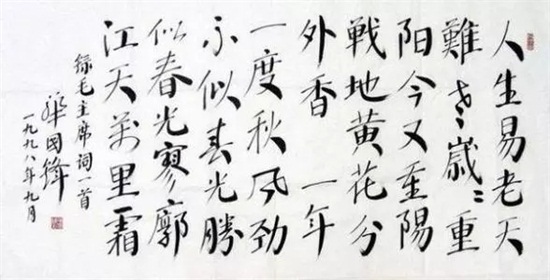 人生易老天
難老歲〻重
阳今又重陽
戰地黄花分
外香 一年
一度秋风劲
不似春光勝
似春光寥廓
江天萬里霜
録毛主席词一首
華国鋒
一九九八年九月